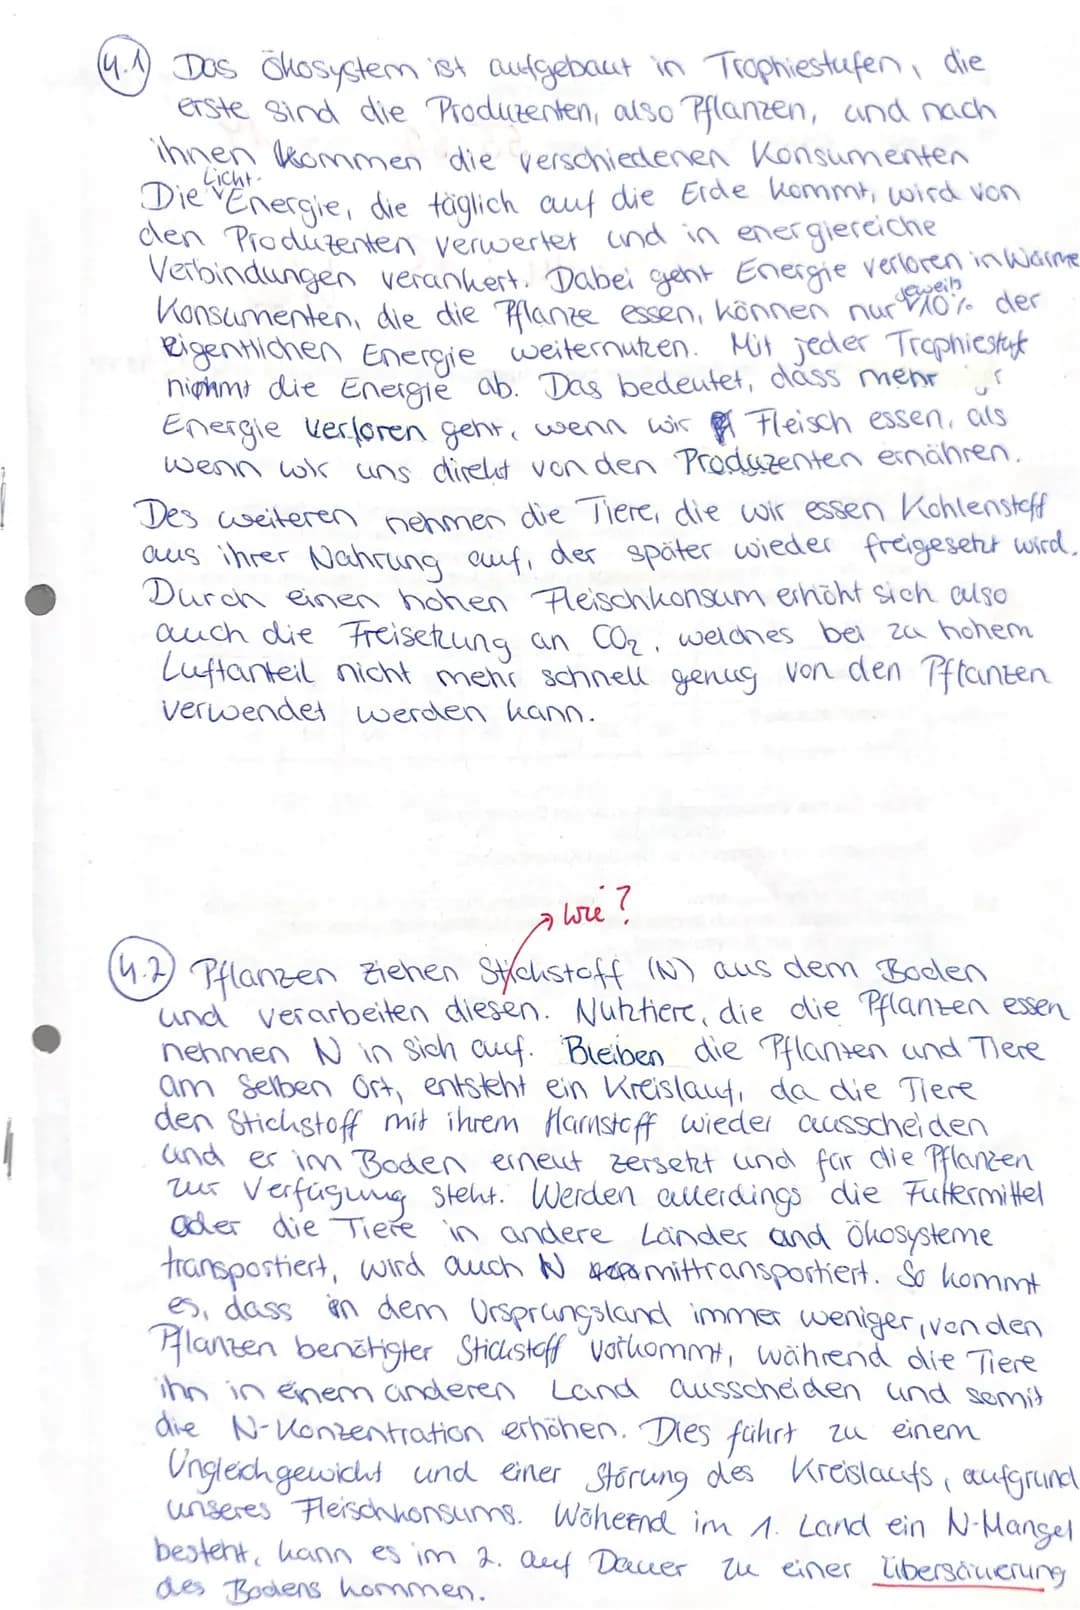 4.1 Das Ökosystem ist aufgebaut in Trophiestufen, die
erste sind die Produzenten, also Pflanzen, und nach
ihnen kommen die verschiedenen Konsumenten
Licht-
Die Energie, die täglich auf die Erde kommt, wird von
den Produzenten verwertet und in energiereiche
Verbindungen verankert. Dabei geht Energie verloren in Wärme
jeweils
Konsumenten, die die Pflanze essen, können nur 10% der
eigentlichen Energie weiternutzen. Mit jeder Trophiestufe
nimmt die Energie ab. Das bedeutet, dass mehr
Energie verloren geht, wenn wir Fleisch essen, als
wenn wir uns direkt von den Produzenten ernähren.
Des weiteren nehmen die Tiere, die wir essen Kohlenstoff
aus ihrer Nahrung auf, der später wieder freigesetzt wird.
Durch einen hohen Fleischkonsum erhöht sich also
auch die Freisetzung an CO₂, welches bei zu hohem
Luftanteil nicht mehr schnell genug von den Pflanzen
verwendet werden kann.
→ Wie?
4.2 Pflanzen ziehen Stickstoff (N) aus dem Boden
und verarbeiten diesen. Nutztiere, die die Pflanzen essen
nehmen N in sich auf. Bleiben die Pflanzen und Tiere
am selben Ort, entsteht ein Kreislauf, da die Tiere
den Stickstoff mit ihrem Harnstoff wieder ausscheiden
und er im Boden erneut zersetzt und für die Pflanzen
zur Verfügung steht. Werden allerdings die Futtermittel
oder die Tiere in andere Länder und Ökosysteme
transportiert, wird auch N mittransportiert. So kommt
es, dass in dem Ursprungsland immer weniger, von den
Pflanzen benötigter Stickstoff vorkommt, während die Tiere
ihn in einem anderen Land ausscheiden und somit
die N-Konzentration erhöhen. Dies führt zu einem
Ungleichgewicht und einer Störung des Kreislaufs, aufgrund
unseres Fleischkonsums. Während im 1. Land ein N-Mangel
besteht, kann es im 2. auf Dauer zu einer Übersäuerung
des Bodens kommen.